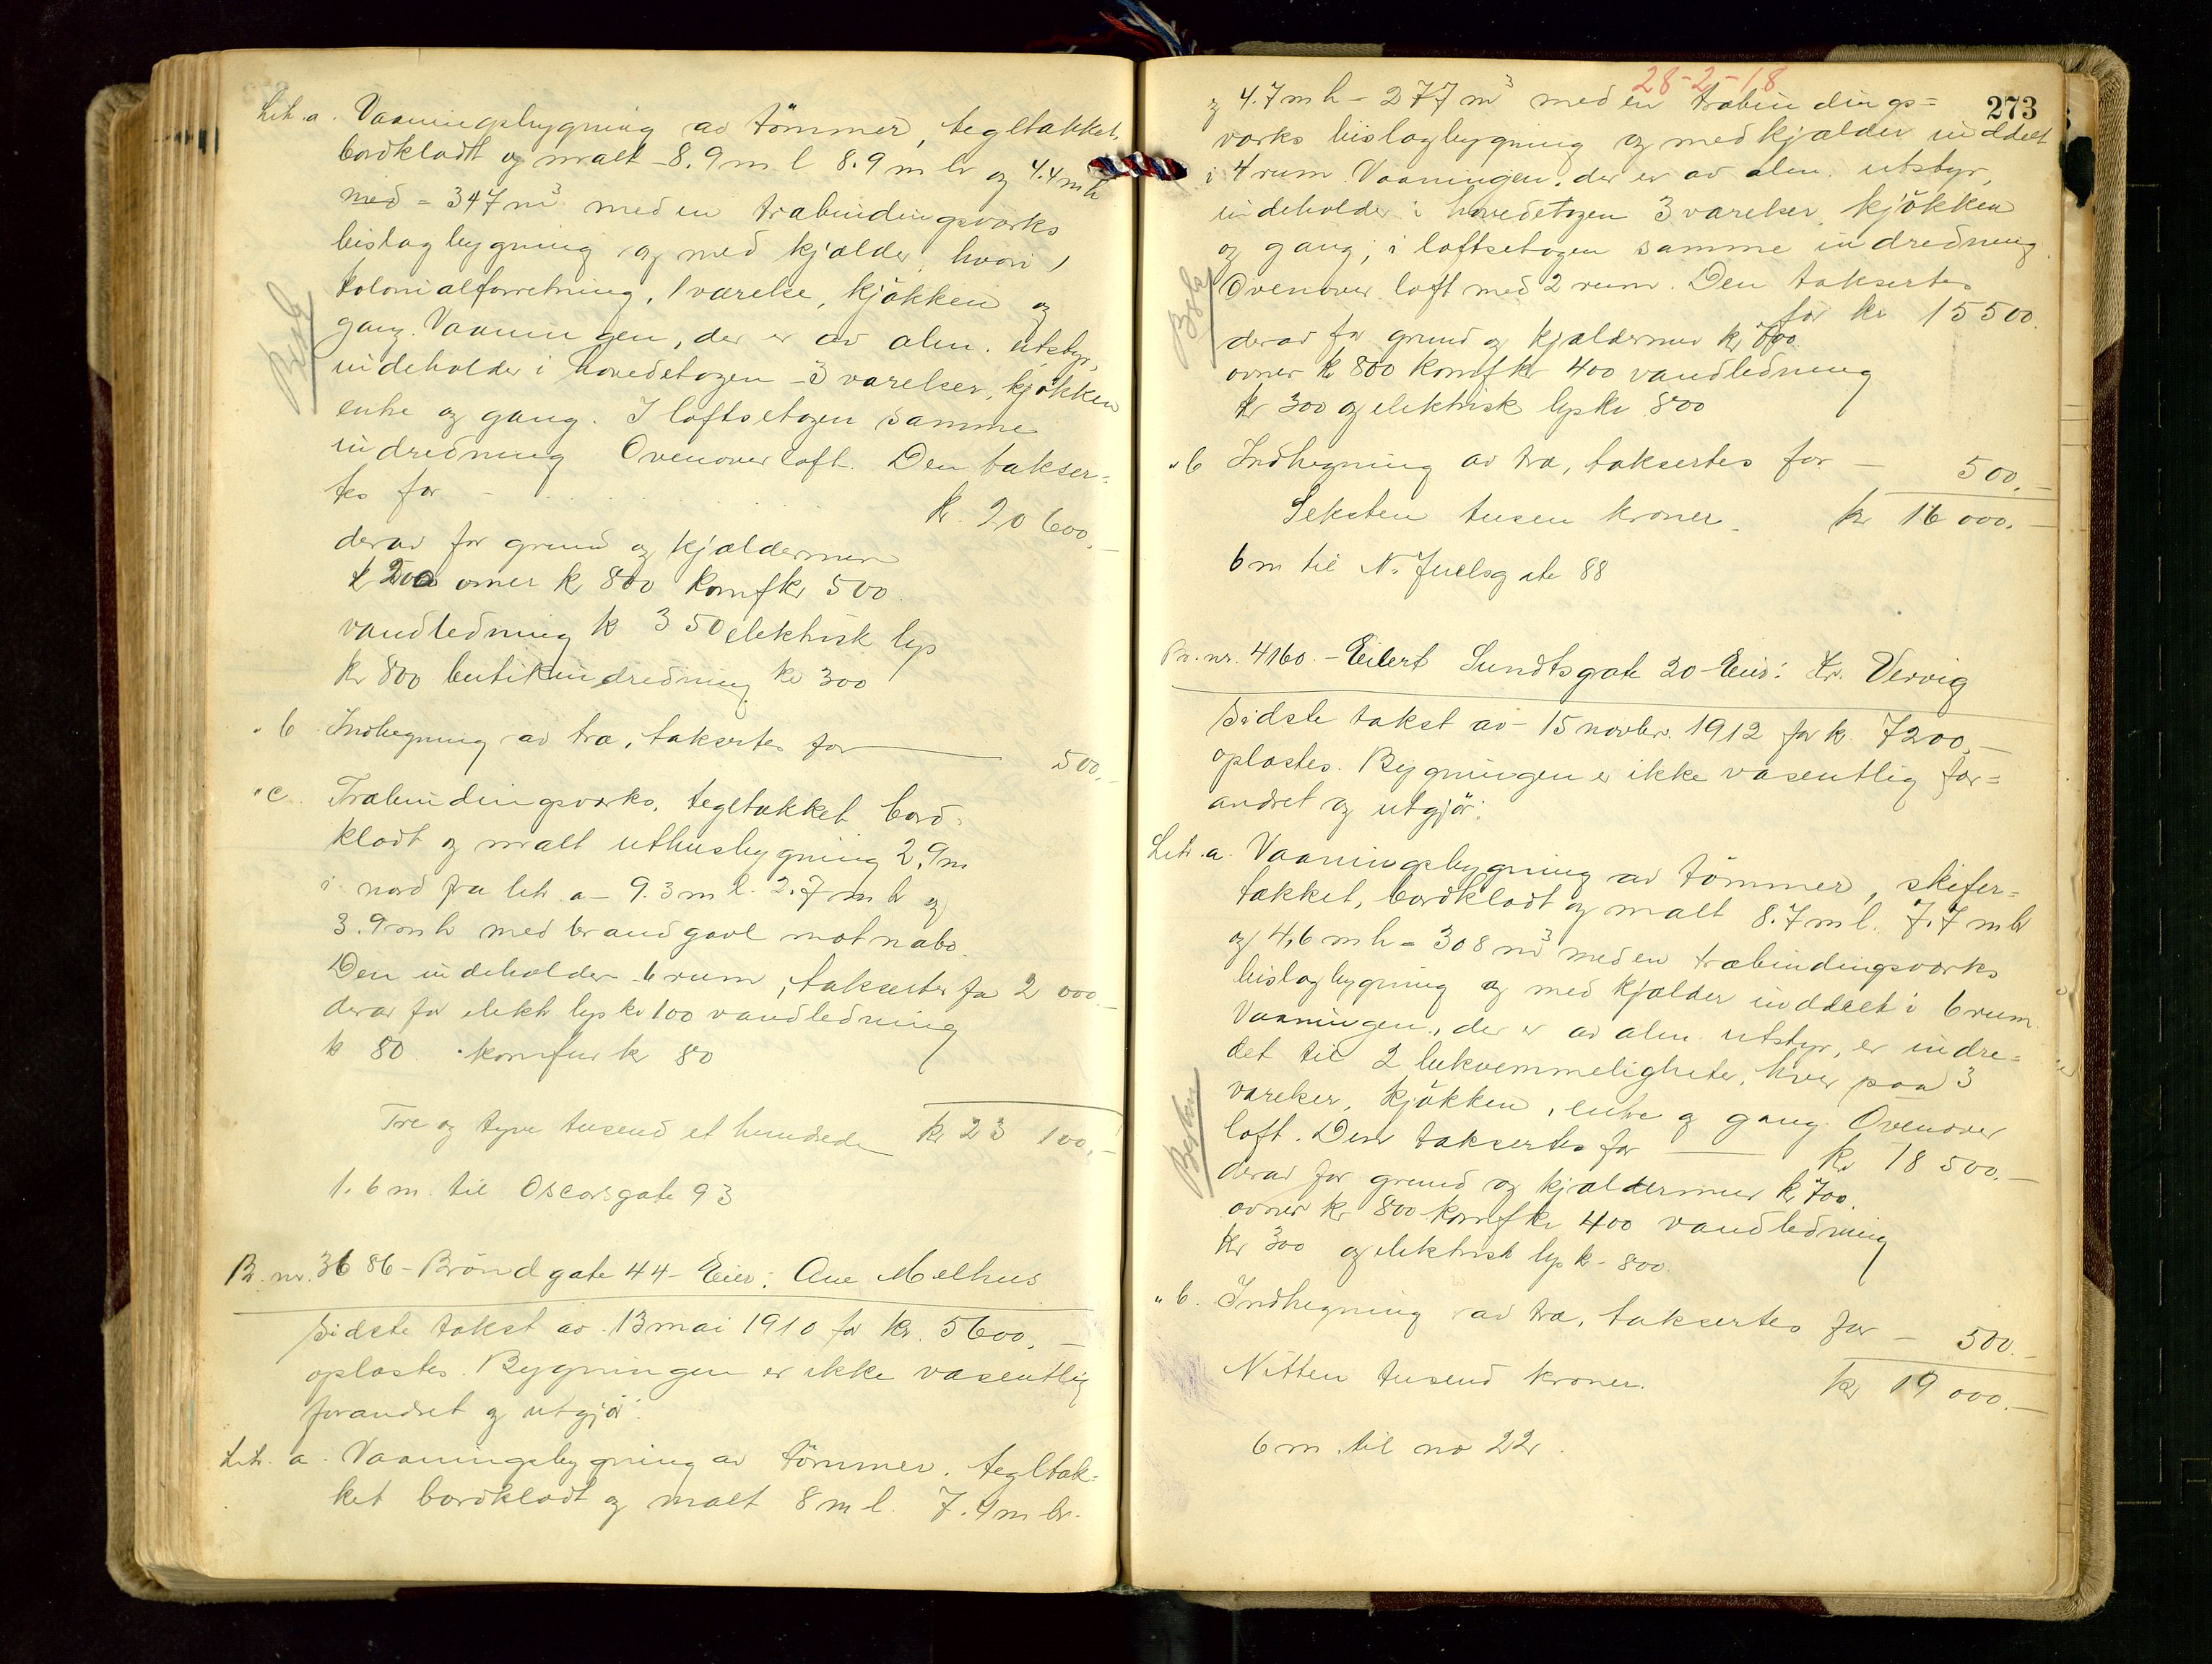 Lit. a. Vaaningsbygning av tömmer, tegltækket,
bordklædt og malt - 8.9 m l 8.9 m br og 4.4 m h
med = 347 m³ med en træbindingsværks
bislagbygning og med kjælder, hvori 1
kolonialforretning, 1 værelse, kjökken og
gang. Vaaningen, der er av alm. utstyr,
indeholder i hovedetagen - 3 værelser, kjökken
entre og gang. I loftsetagen samme
indredning Ovenover loft. Den takser=
tes for - kr. 20 600.-
derav for grund og kjældermur
k 200 ovner kr 800 komf kr 500
vandledning k 350 elektrisk lys
kr 800 butikindredning kr 300
" b Indhegning av træ, taksertes for 500.-
" c. Træbindingsværks, tegltækket bord-
klædt og malt uthusbygning 2,9 m
i nord fra lit. a - 9.3 m l. 2.7 m br og
3.9 m h med brandgavl mot nabo.
Den indeholder 6 rum, taksertes for 2 000.-
derav for elektr lys kr 100 vandledning
k 80. komfur kr 80
Tre og tyve tusend et hundrede kr 23 100.-
1.6 m. til Oscarsgate 93
Br. nr. 3686 - Bröndgate 44 - Eier: Ane Melhus
Sidste takst av 13 mai 1910 for kr. 5600.-
oplæstes. Bygningen er ikke væsentlig
forandret og utgjör:
Lit. a. Vaaningsbygning av tömmer, tegltæk=
ket bordklædt og malt 8 m l. 7.4 m br.
28-2-18
273
og 4.7 m h - 277 m³ med en træbindings=
værks bislagbygning og med kjælder inddelt
i 4 rum. Vaaningen, der er av alm. utstyr,
indeholder i hovedetagen 3 værelser, kjökken
og gang; i loftsetagen samme indredning.
Ovenover loft med 2 rum. Den taksertes
for kr 15500.
derav for grund og kjældermur kr 700
ovner kr 800 komf kr 400 vandledning
kr 300 og elektrisk lys kr 800
" b Indhegning av træ, taksertes for - 500.-
Seksten tusen kroner. kr 16 000.-
6 m til N. Juelsgate 88
Br. nr. 4160. - Eilert Sundtsgate 20 - Eier: Kr. Vervig
Sidste takst av - 15 novbr. 1912 for k. 7200.-
oplæstes. Bygningen er ikke væsentlig for=
andret og utgjör:
Lit. a. Vaaningsbygning av tömmer, skifer=
tækket, bordklædt og malt 8.7 m l. 7.7 m br
og 4,6 m h = 308 m³ med en træbindingsværks
bislagbygning og med kjælder inddelt i 6 rum.
Vaaningen, der er av alm. utstyr, er indre=
det til 2 bekvemmeligheter, hver paa 3
værelser, kjökken, entre og gang. Ovenover
loft. Den taksertes for kr 18 500.-
derav for grund og kjældermur kr 700.
ovner kr 800 komf kr 400 vandledning
kr 300 og elektrisk lys k. 800.
" b. Indhegning av træ, taksertes for - 500.-
Nitten tusend kroner. kr 19 000.-
6 m. til no 22.